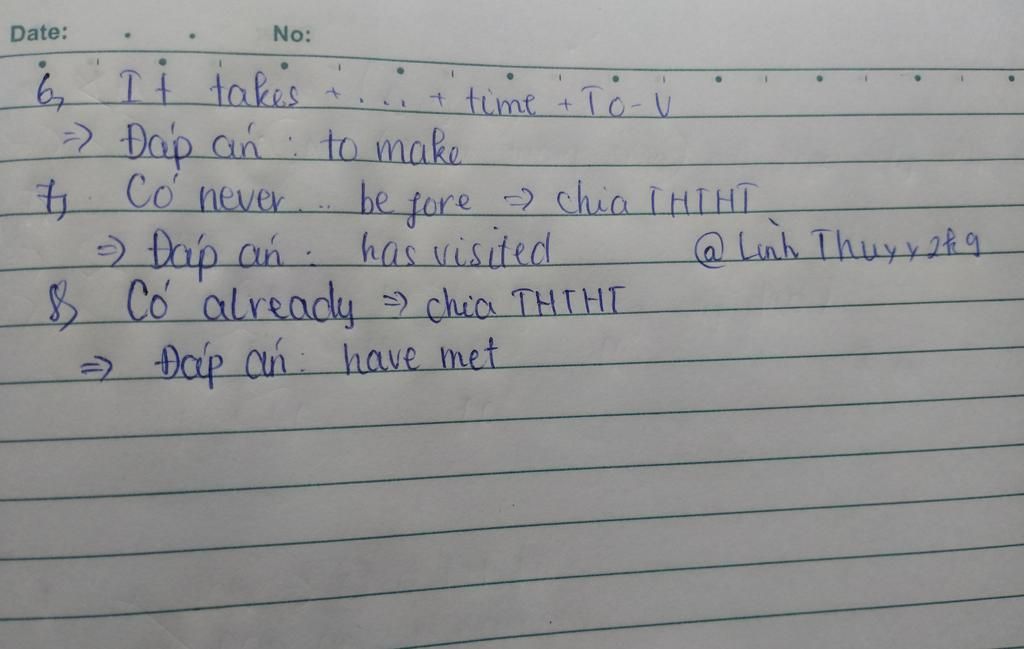 Date: No:
6, It takes + ... + time + To-V
=> Đáp án: to make
7, Có never ... before => chia THTHT
=> Đáp án: has visited @Linh Thuyy2k9
8, Có already => chia THTHT
=> Đáp án: have met